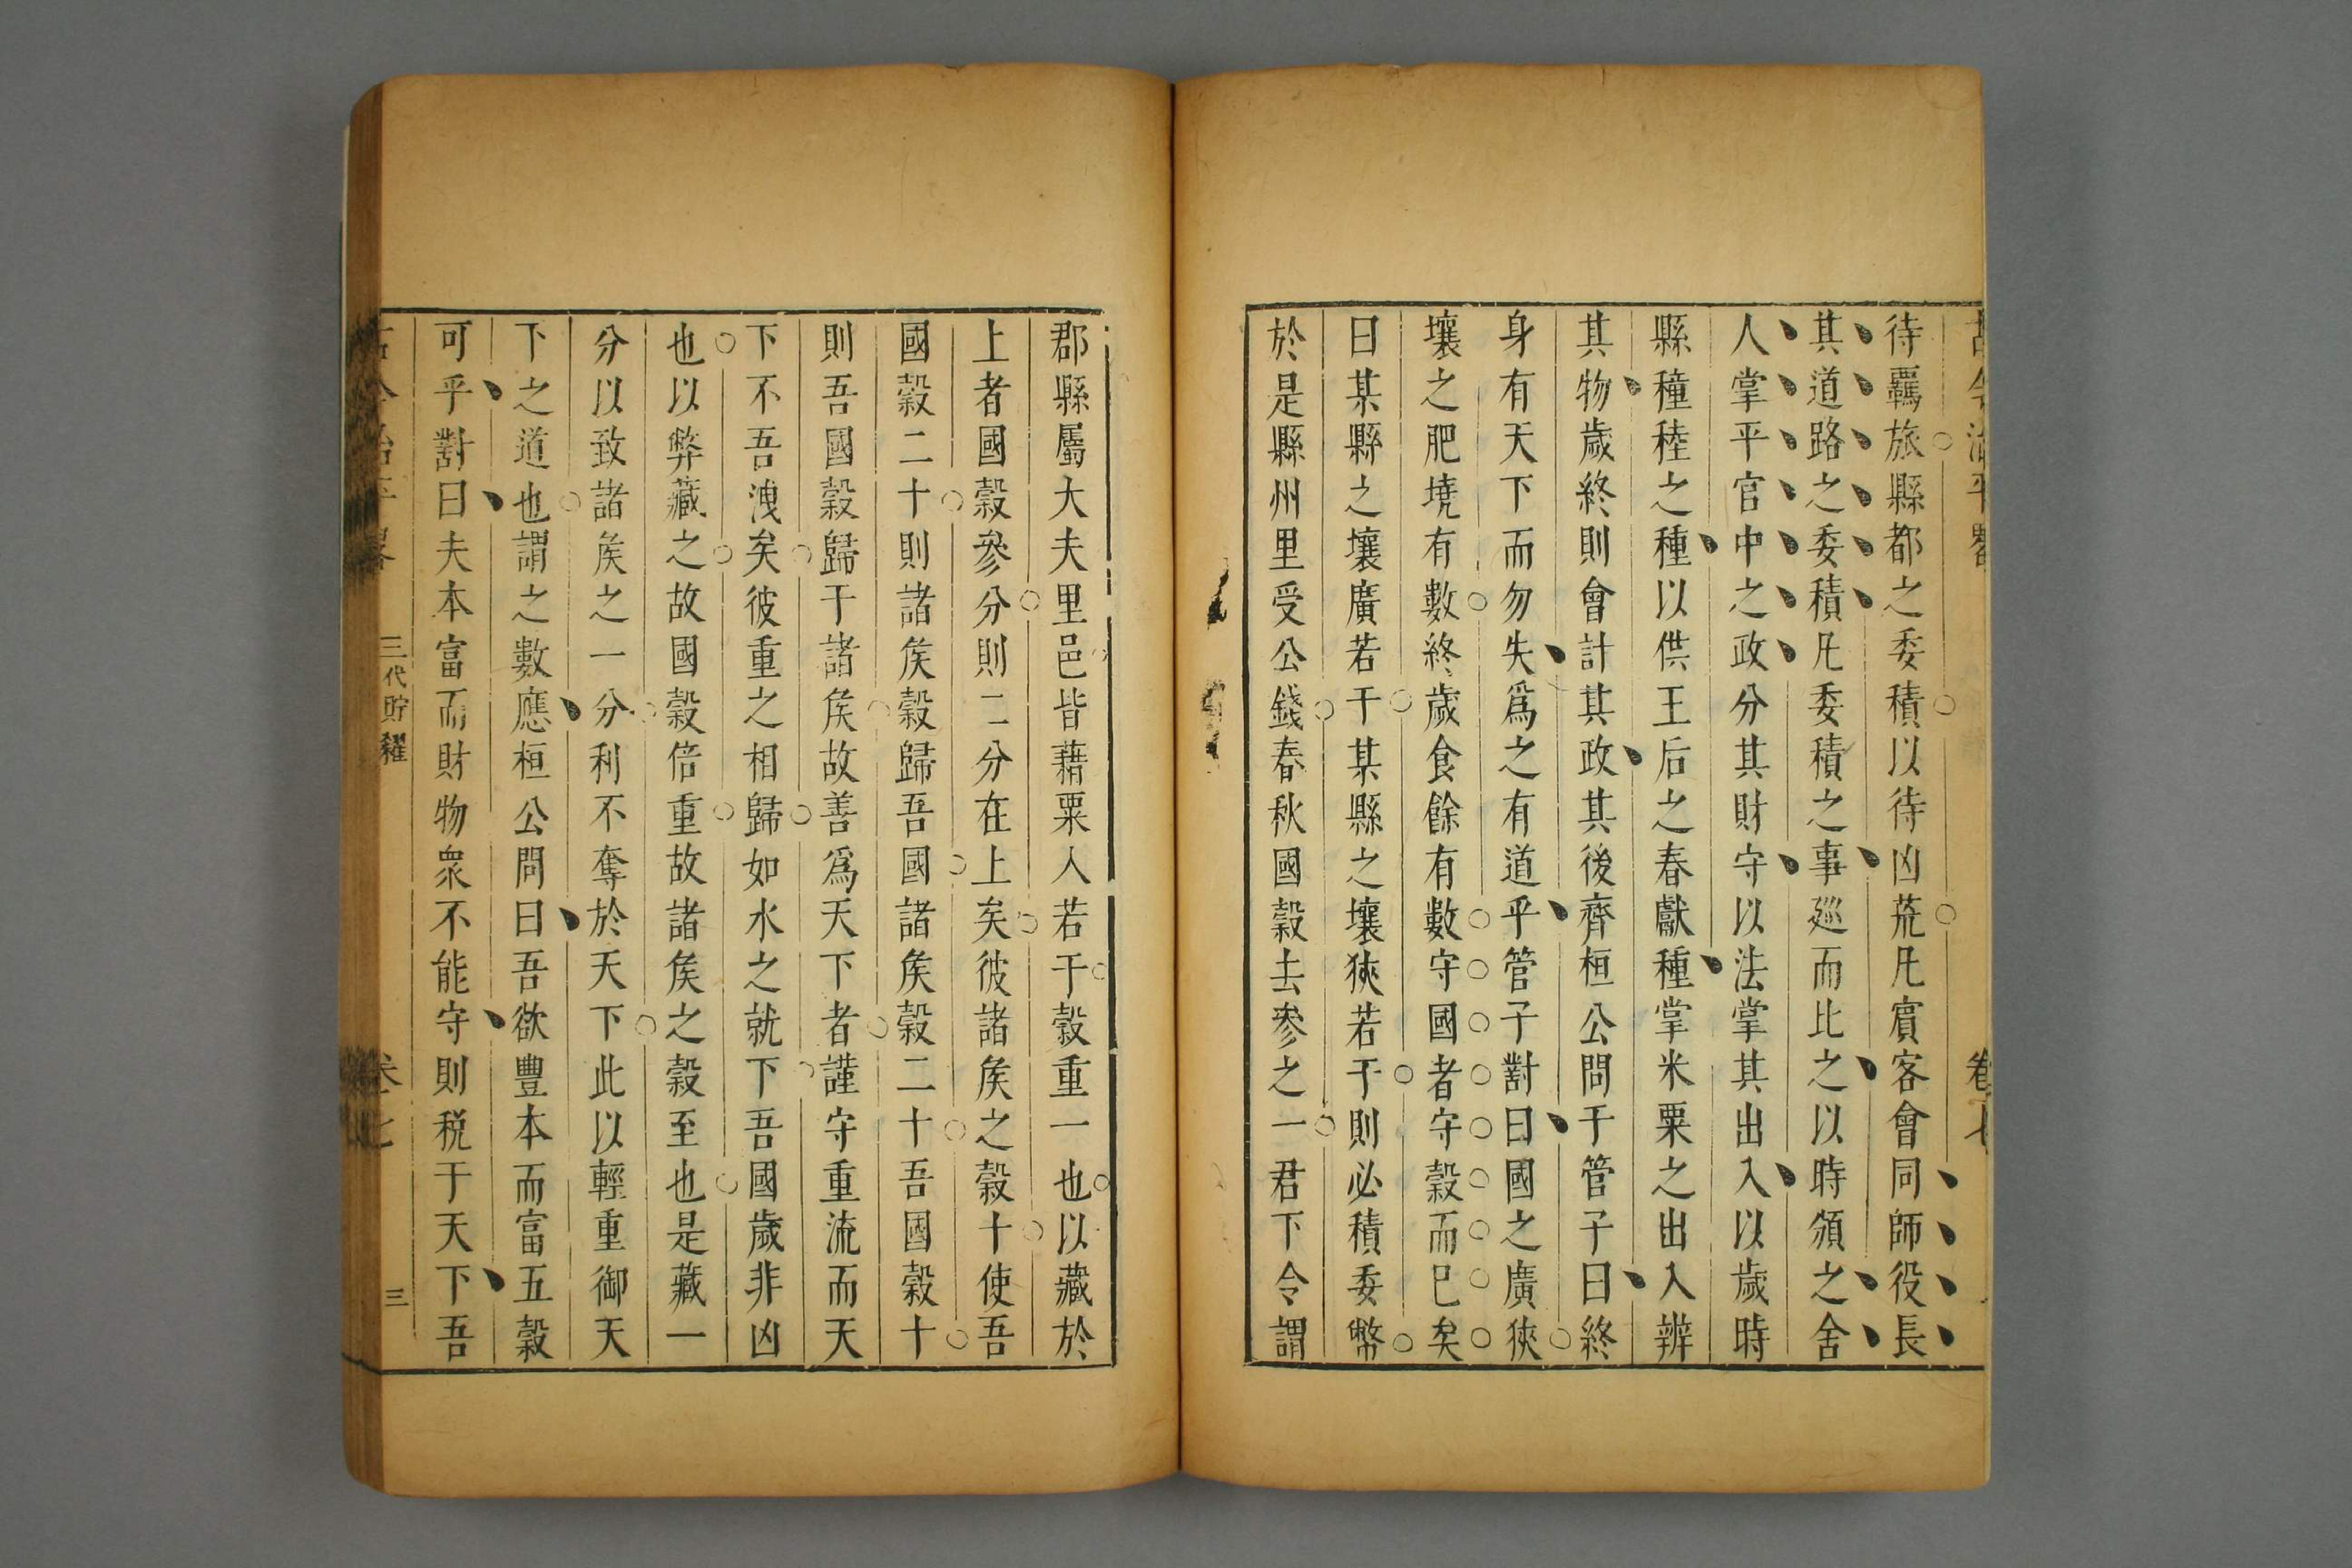 古今治平畧 卷七
待羈旅縣都之委積以待凶荒凡賓客會同師役長
其道路之委積凡委積之事廵而比之以時頒之舍
人掌平宮中之政分其財守以法掌其出入以歲時
縣穜稑之種以供王后之春獻種掌米粟之出入辨
其物歲終則會計其政其後齊桓公問于管子曰終
身有天下而勿失爲之有道乎管子對曰國之廣狹
壤之肥墝有數終歲食餘有數守國者守穀而已矣
曰某縣之壤廣若干某縣之壤狹若干則必積委幣
於是縣州里受公錢春秋國穀去參之一君下令謂
郡縣屬大夫里邑皆藉粟入若干穀重一也以藏於
上者國穀參分則二分在上矣彼諸矦之穀十使吾
國穀二十則諸矦穀歸吾國諸矦穀二十吾國穀十
則吾國穀歸于諸矦故善爲天下者謹守重流而天
下不吾洩矣彼重之相歸如水之就下吾國歲非凶
也以弊藏之故國穀倍重故諸矦之穀至也是藏一
分以致諸矦之一分利不奪於天下此以輕重御天
下之道也謂之數應桓公問曰吾欲豐本而富五穀
可乎對曰夫本富而財物衆不能守則税于天下吾
古今治平畧 三代貯糴 卷七 三